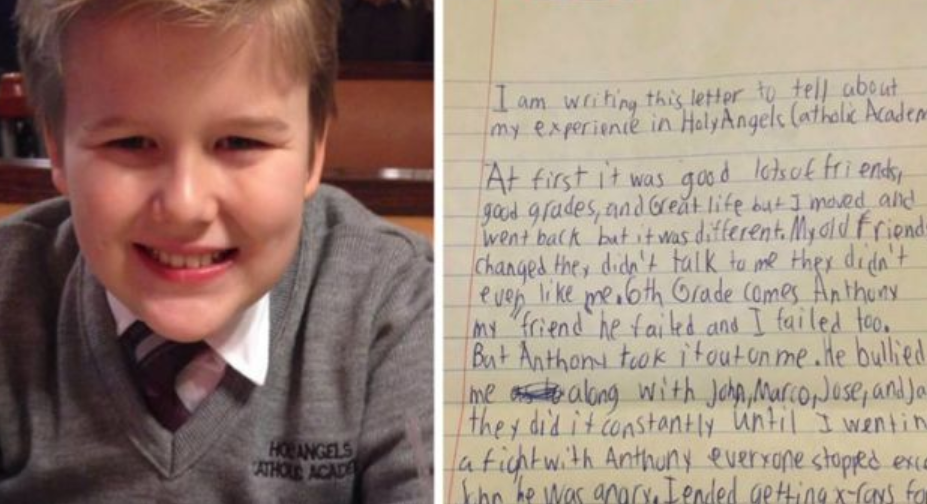 HOLY ANGELS
CATHOLIC ACADE
I am writing this letter to tell about
my experience in HolyAngels Catholic Academ
At first it was good lots of friends,
good grades, and Great life but I moved and
went back but it was different. My old Friend
changed they didn't talk to me they didn't
even like me. 6th Grade comes Anthony
my friend he failed and I failed too.
But Anthony took it out on me. He bullied
me along with John, Marco, Jose, and Ja
they did it constantly until I went in
a fight with Anthony everyone stopped exc
he was angry. I ended getting x-rays fo